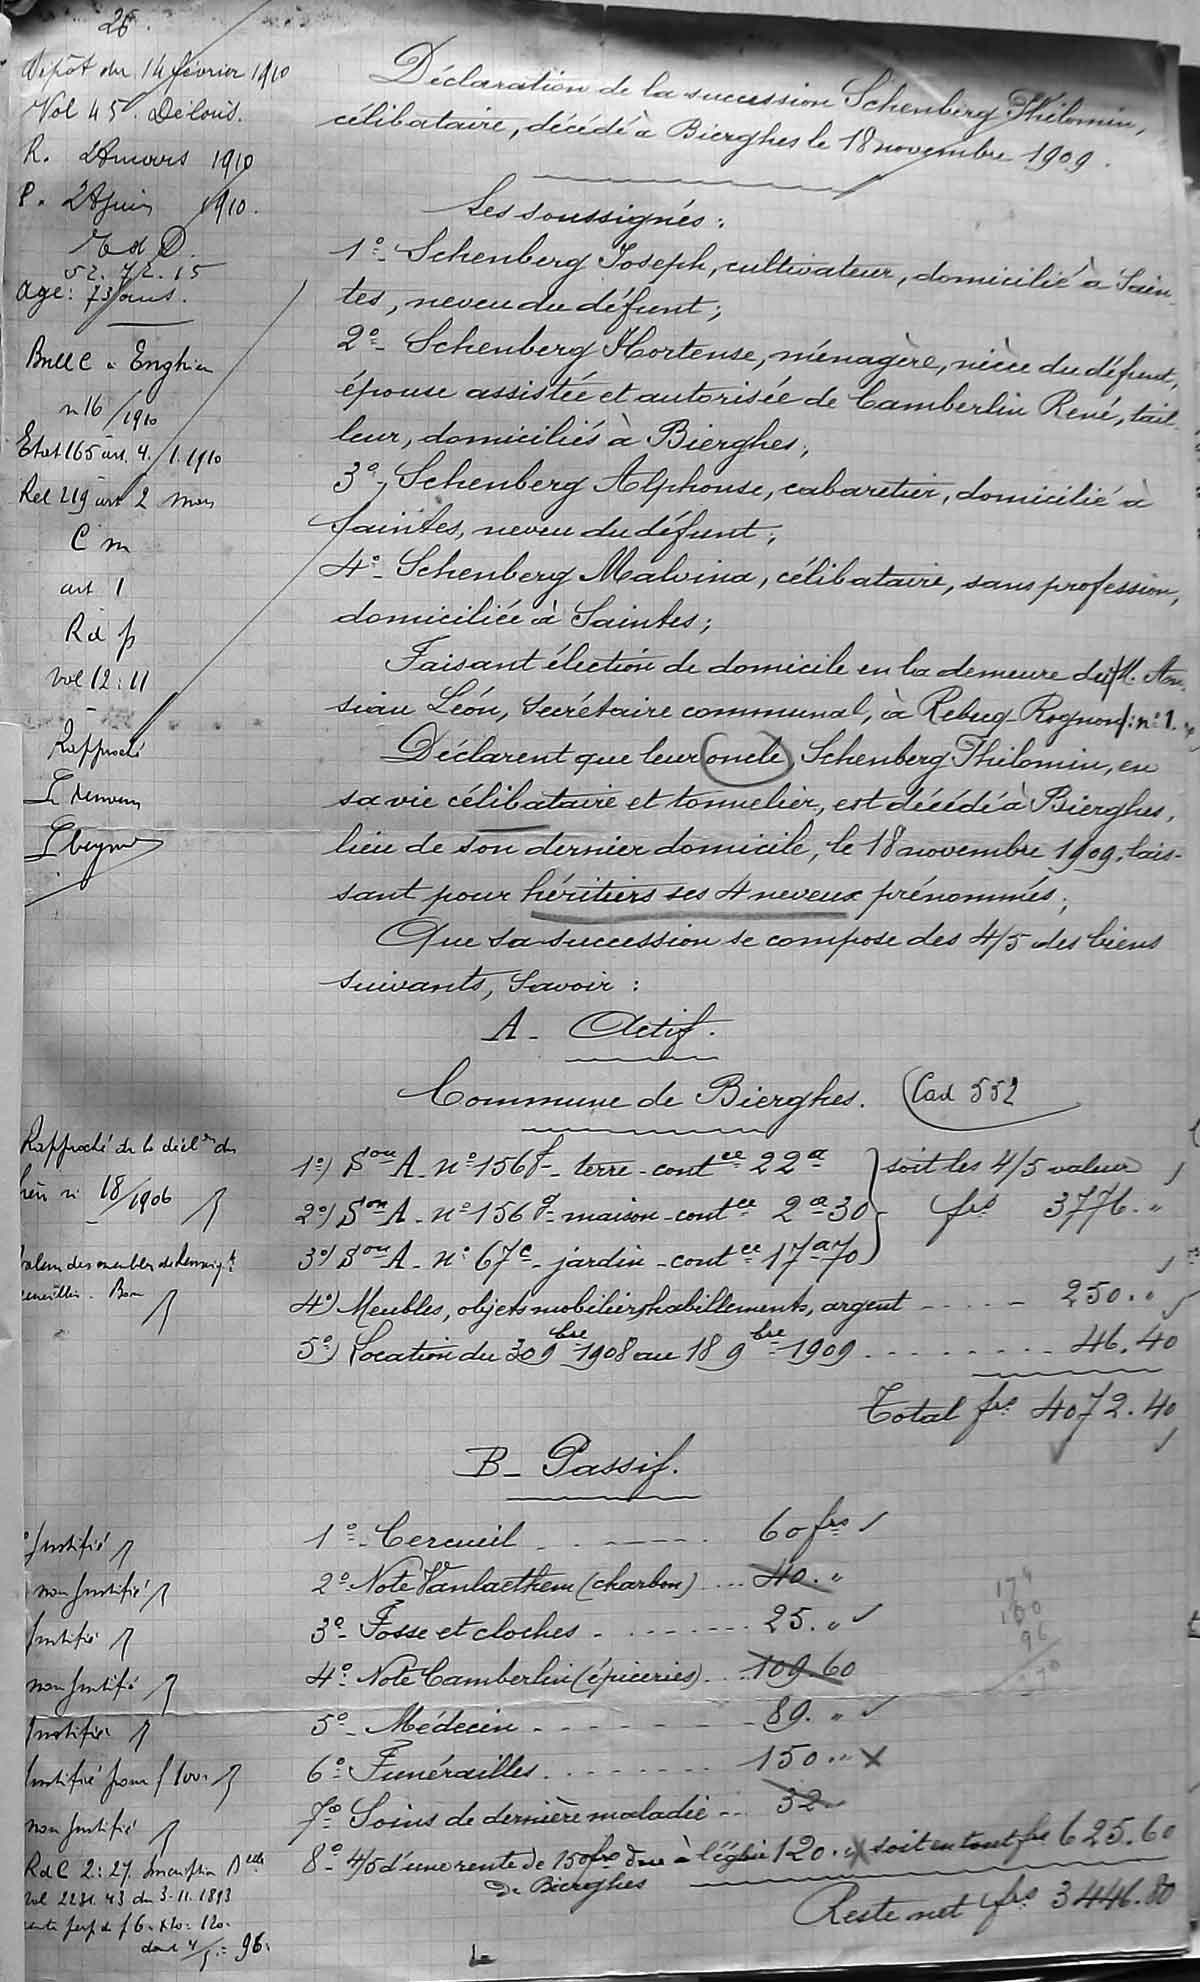 26.
Dépôt du 14 février 1910
Vol 45.
R. 24 mars 1910
P. 24 juin 1910.
52. 72. 15
age: 73 ans.
à Enghien
n 16/1910
Etat 165 art. 4. 1. 1910
Rel 219 art 2 mars
C m
art 1
R d p
vol 12:11
Rapproché
Déclaration de la succession Schenberg Philomin,
célibataire, décédé à Bierghes le 18 novembre 1909.
Les soussignés:
1º- Schenberg Joseph, cultivateur, domicilié à Sain-
tes, neveu du défunt;
2º- Schenberg Hortense, ménagère, nièce du défunt,
épouse assistée et autorisée de Camberlin René, tail-
leur, domiciliés à Bierghes;
3º- Schenberg Alphonse, cabaretier, domicilié à
Saintes, neveu du défunt;
4º- Schenberg Malvina, célibataire, sans profession,
domiciliée à Saintes;
Faisant élection de domicile en la demeure de M. An-
siau Léon, Secrétaire communal, à Rebecq-Rognon: nº 1.
Déclarent que leur oncle Schenberg Philomin, en
sa vie célibataire et tonnelier, est décédé à Bierghes,
lieu de son dernier domicile, le 18 novembre 1909, lais-
sant pour héritiers ses 4 neveux prénommés;
Que sa succession se compose des 4/5 des biens
suivants, Savoir:
A- Actif.
Commune de Bierghes. (Cad 552
Rapproché de la décl on des
18/1906
1º) Son A- nº 156 f- terre- contce 22a
2º) Son A- nº 156 g- maison- contce 2a 30
3º) Son A- nº 67c- jardin- contce 17a 70
soit les 4/5 valeur
frs 3776. "
4º) Meubles, objets mobiliers, habillements, argent ----- 250. "
5º) Location du 30 9bre 1908 au 18 9bre 1909 --------- 46.40
Total frs 4072.40
B- Passif.
Justifié 1º- Cercueil ------- 60 frs
non justifié 2º- Note Vanlaethem (charbon) ... 40. "
Justifié 3º- Fosse et cloches ------- 25. "
non justifié 4º- Note Camberlin (épiceries) ... 109.60
Justifié 5º- Médecin ------- 89. "
Justifié pour f 100. 6º- Funérailles ------- 150. " x
non justifié 7º- Soins de dernière maladie -- 32
8º- 4/5 d'une rente de 150 frs due à l'église 120. " x soit en tout frs 625.60
de Bierghes
R d C 2:27. Inscription Blle
vol 2231. 43 du 3.11.1893
rente perp de f 6. x 20 = 120.
dont 4/5 = 96.
Reste net frs 3446.80
174
100
96